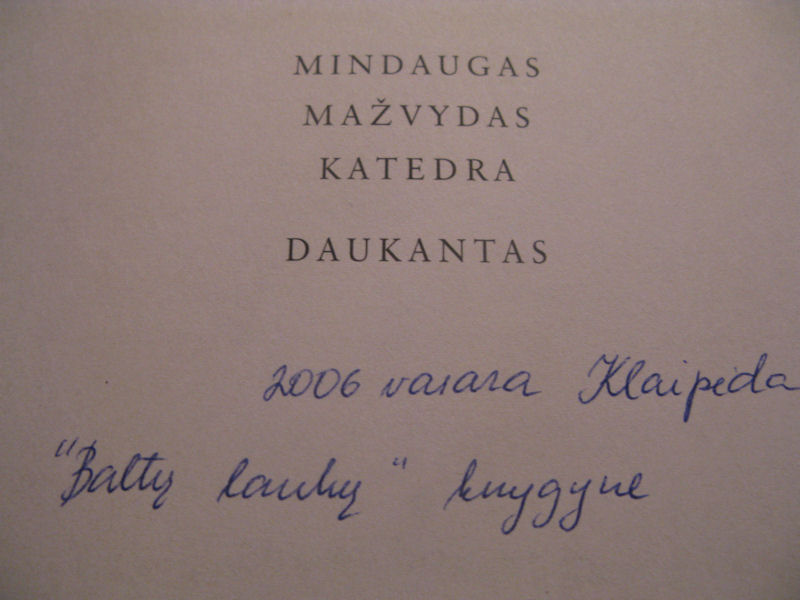 MINDAUGAS
MAŽVYDAS
KATEDRA
DAUKANTAS
2006 vasara Klaipėda
"Baltų lankų" knygyne